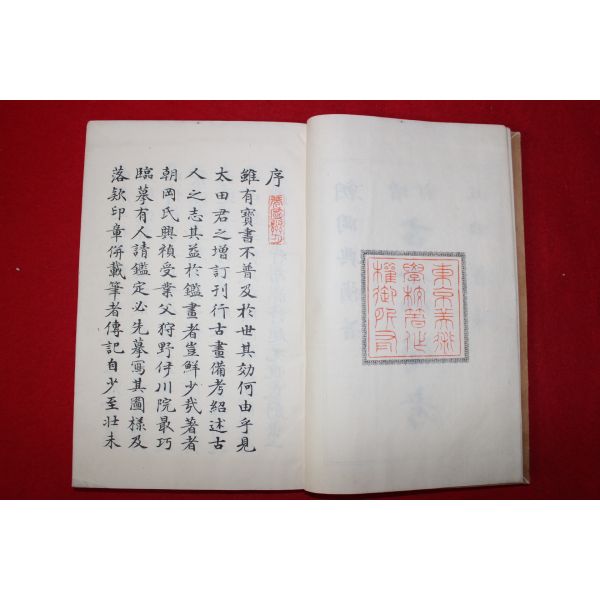 東京美術
學校著作
權御所有
序
雖有寶書不普及於世其効何由乎見
太田君之增訂刊行古畫備考紹述古
人之志其益於鑑畫者豈鮮少哉著者
朝岡氏興禎受業父狩野伊川院最巧
臨摹有人請鑑定必先摹寫其圖樣及
落欵印章併載筆者傳記自少至壯未